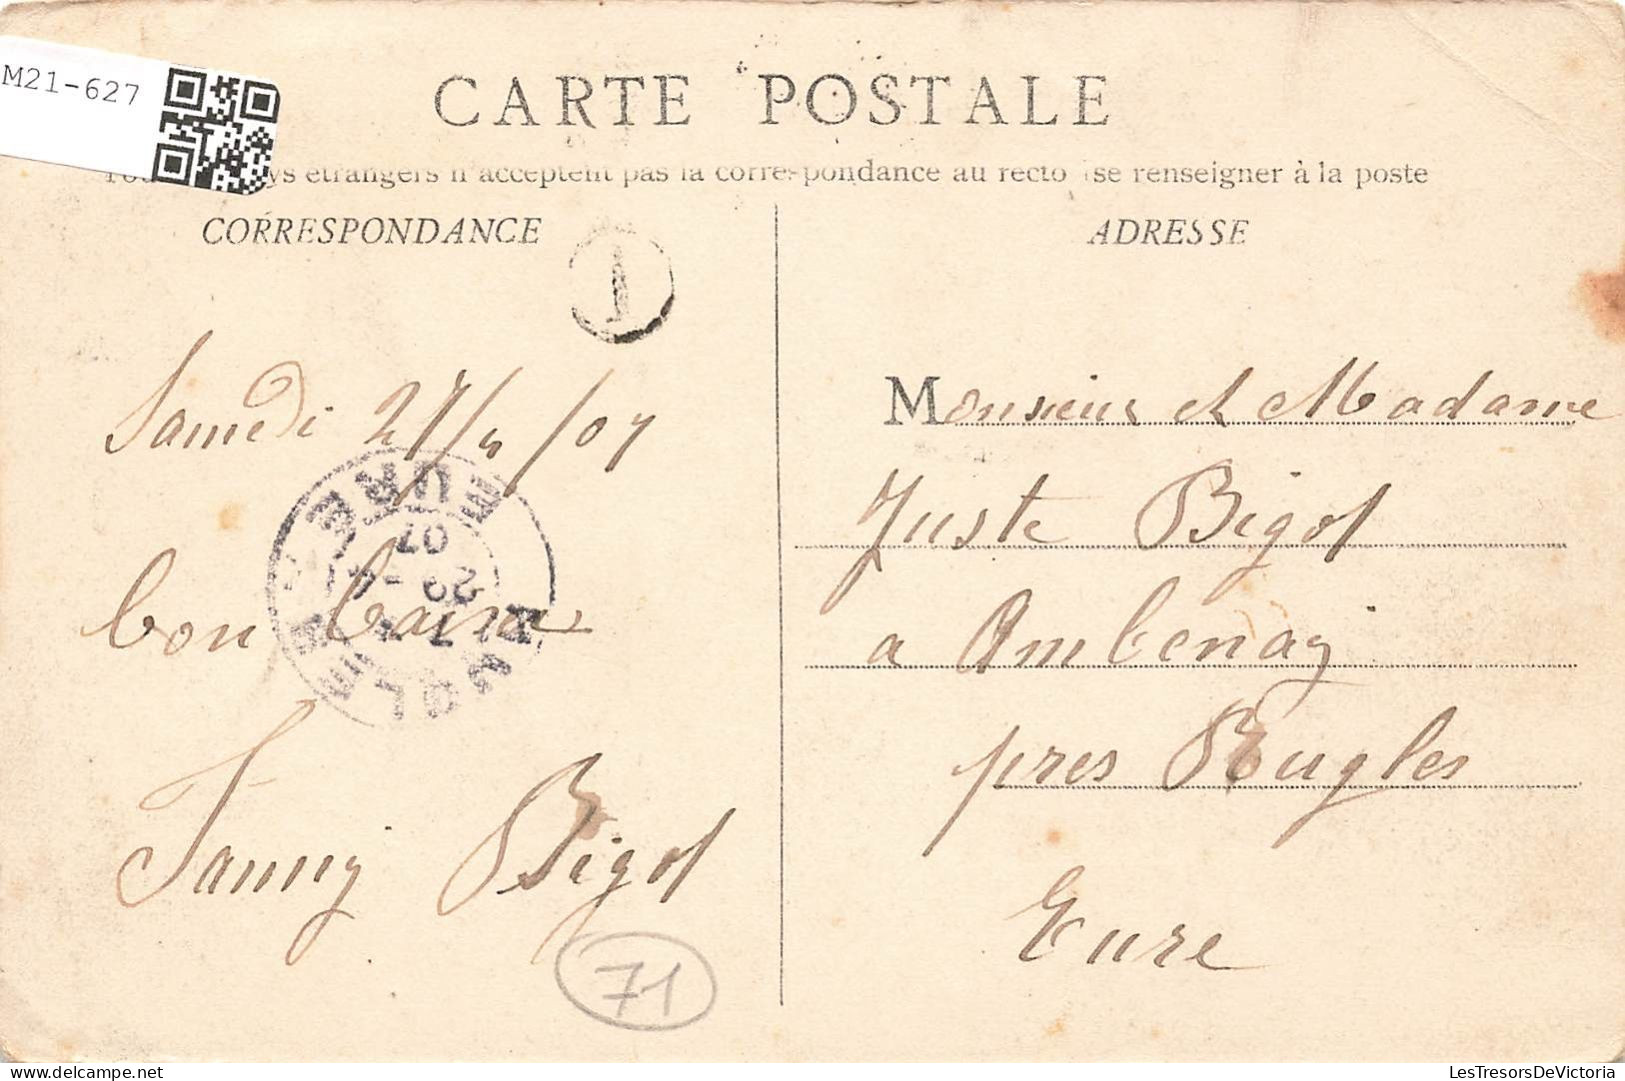 M21-627
CARTE POSTALE
ys étrangers n'acceptent pas la correspondance au recto (se renseigner à la poste
CORRESPONDANCE
ADRESSE
1
Samedi 27/4/07
bon baise
Fanny Bigot
71
Monsieur et Madame
Juste Bigot
a Ambenay
pres Rugles
Eure
RUGLES EURE
29 -4
07
delcampe.net
LesTresorsDeVictoria